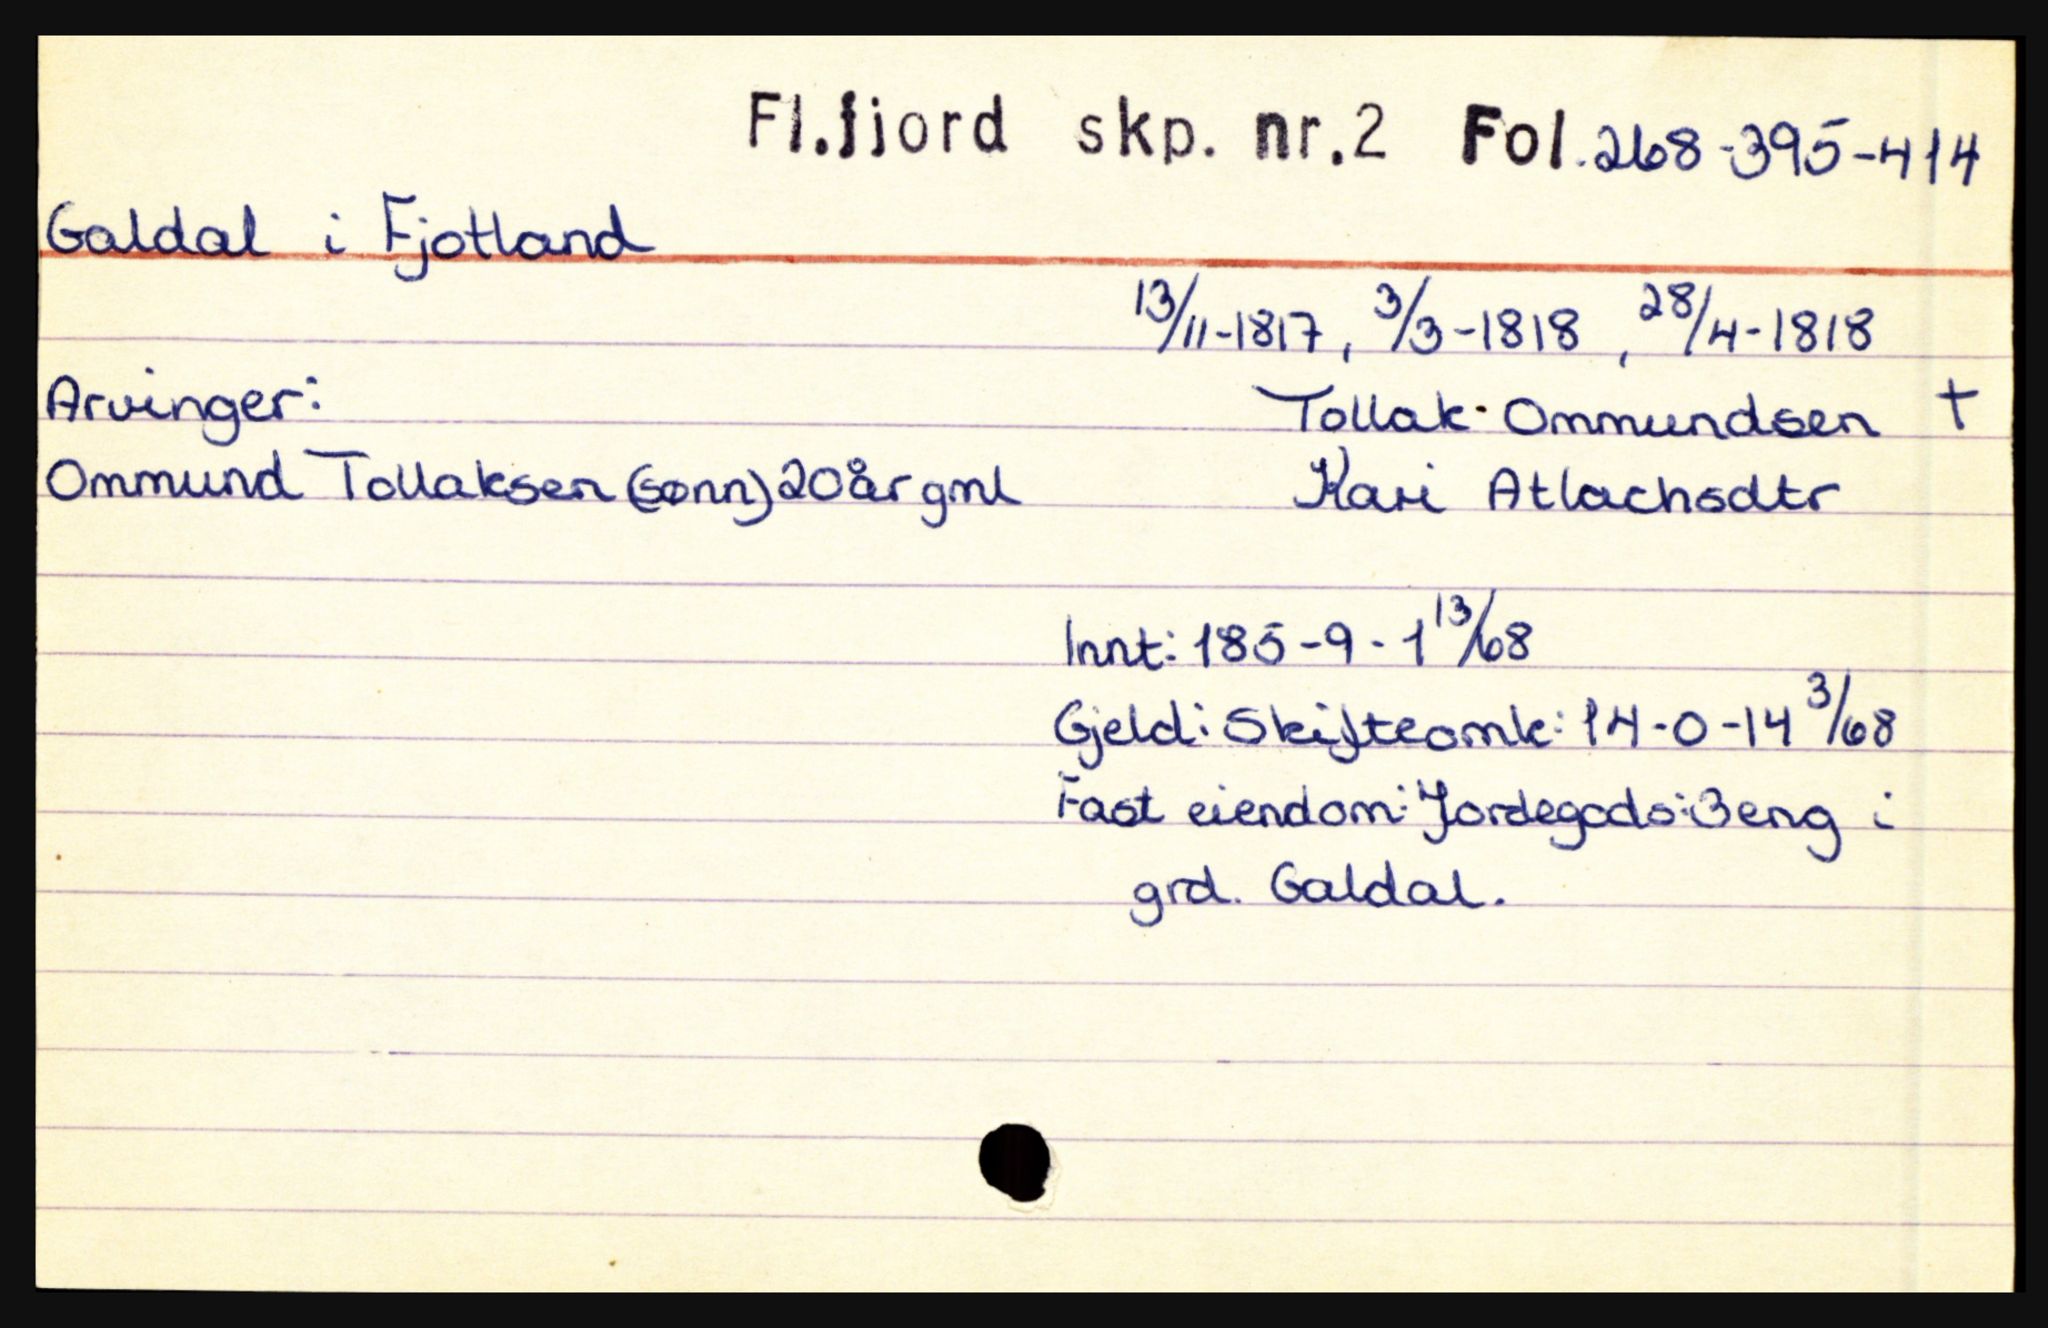 Fl.fjord skp. nr.2 Fol.268-395-414
Galdal i Fjotland
13/11-1817, 3/3-1818, 28/4-1818
Arvinger:
Tollak Ommundsen †
Ommund Tollaksen (sønn) 20 år gml
Kari Atlachsdtr
Innt: 185-9-1 13/68
Gjeld: Skifteomk: 14-0-14 3/68
Fast eiendom: Jordegods: 3 eng i
grd. Galdal.